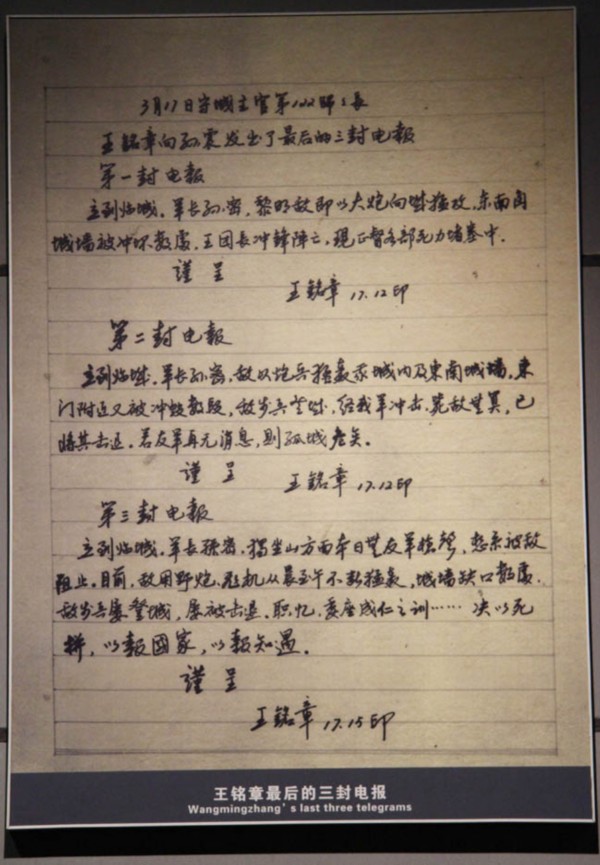 3月17日守城主官第122师师长
王铭章向孙震发出了最后的三封电报
第一封电报
立到临城。军长孙密，黎明敌即以大炮向城猛攻，东南角
城墙被冲坏数处，王团长冲锋阵亡，现正督各部死力堵塞中。
谨呈
王铭章 17.12印
第二封电报
立到临城。军长孙密，敌以炮兵猛轰我城内及東南城墙，東
门附近又被冲毁数段，敌步兵登城，经我军冲击，毙敌无算，已
将其击退。若友军再无消息，则孤城危矣。
谨呈
王铭章 17.12印
第三封电报
立到临城。军长孙密，独坐山方面本日无友军枪声，想系被敌
阻止。目前，敌用野炮、飞机从晨至午不断猛轰，城墙缺口数处，
敌步兵屡登城，屡被击退。职忆，委座成仁之训……决以死
拼，以報國家，以報知遇。
谨呈
王铭章 17.15印
王铭章最后的三封电报
Wangmingzhang's last three telegrams